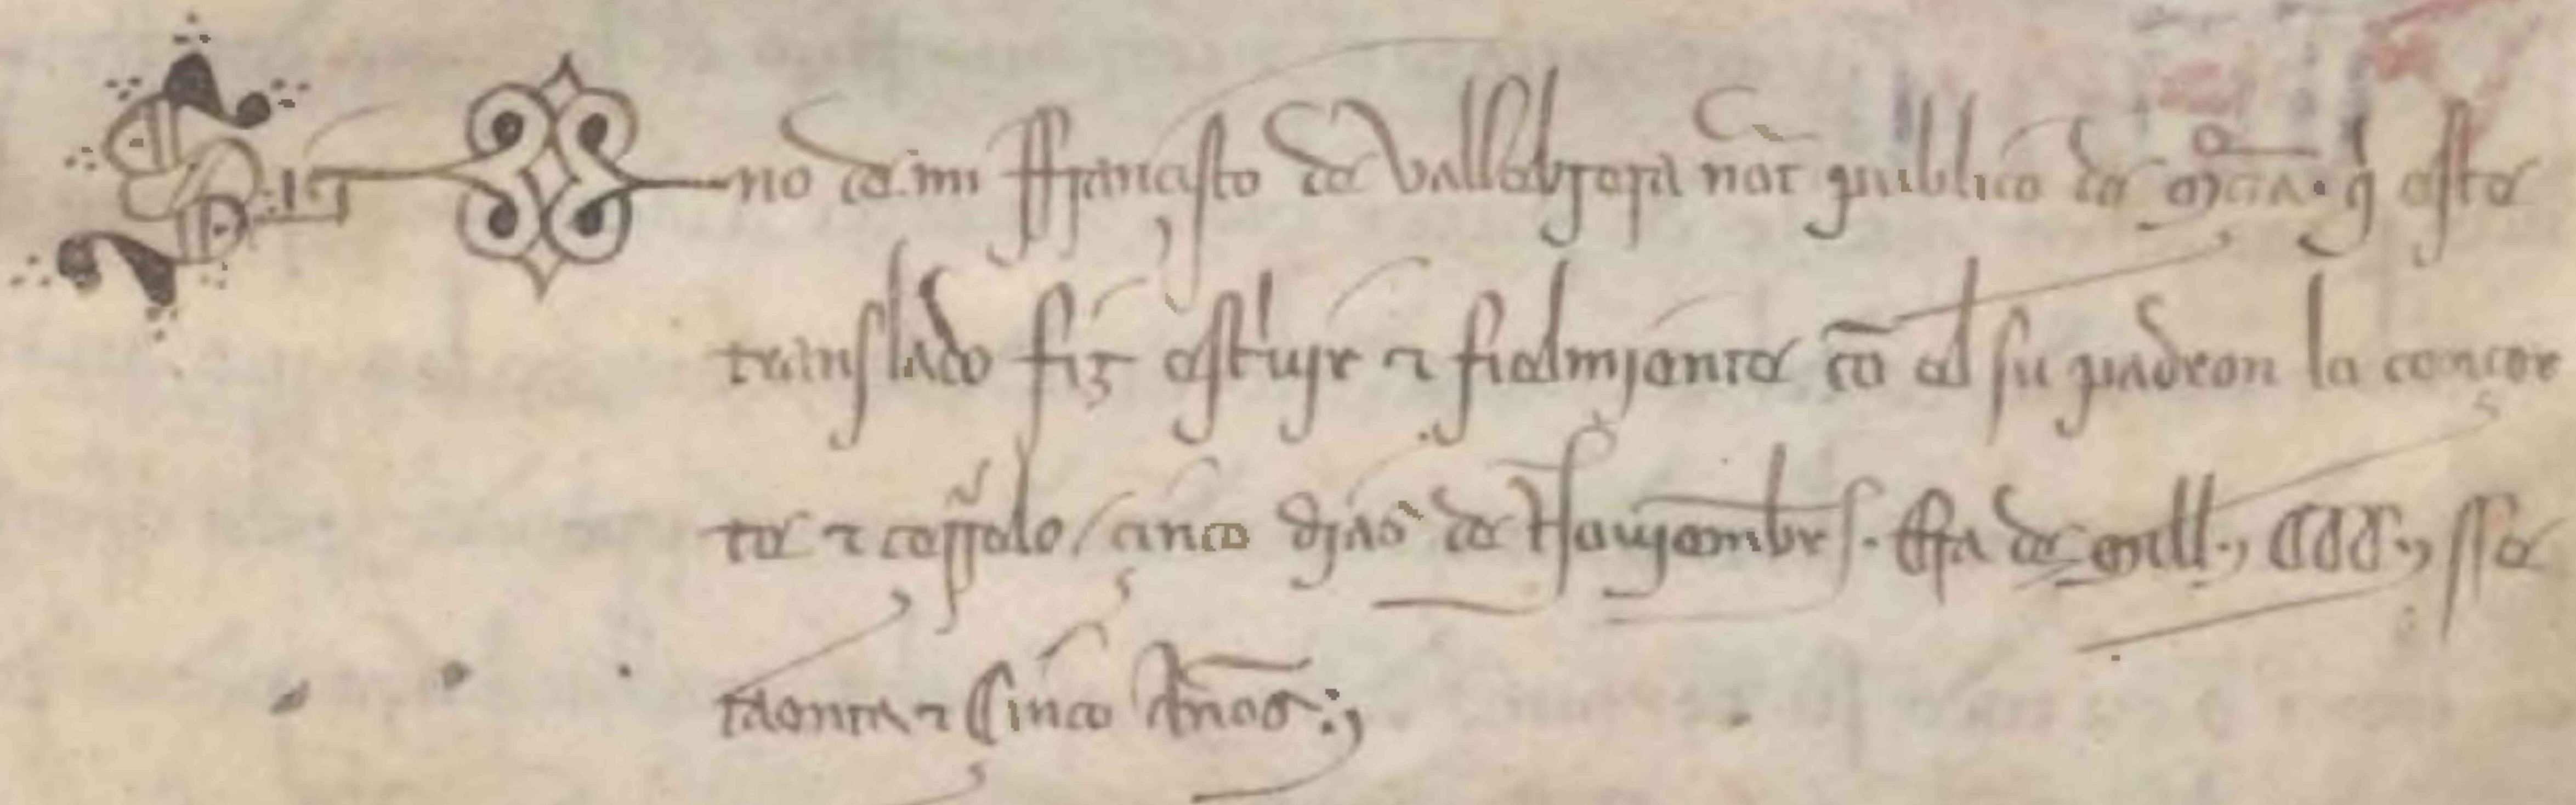 Sig no de mi ffrancisco de Vallebrera not publico de Mcia. q este
translado fiz escriujr ⁊ fielmjente cō el su padron la concor
te ⁊ cerrelo / cinco djas de Nouyembre. Era de mill., CCC., sse
taenta ⁊ Cinco Años.,